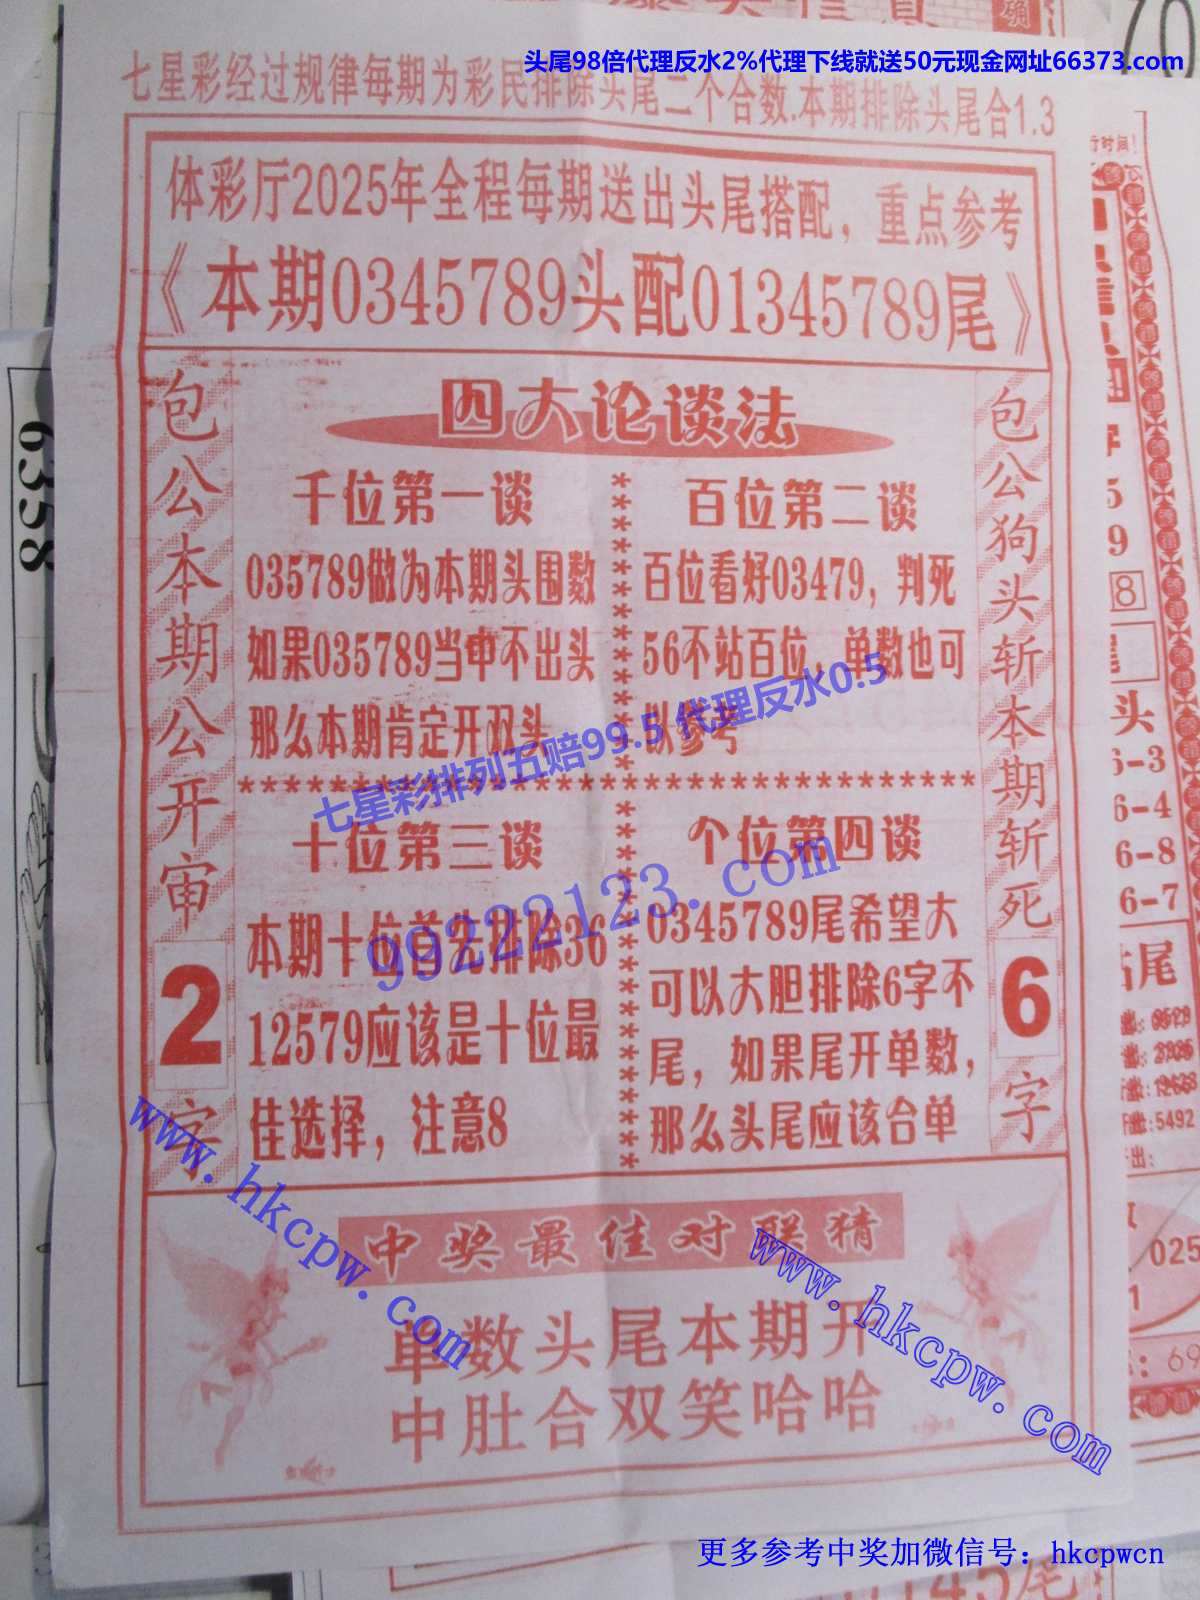 头尾98倍代理反水2%代理下线就送50元现金网址66373.com
七星彩经过规律每期为彩民排除头尾二个合数.本期排除头尾合1.3
体彩厅2025年全程每期送出头尾搭配，重点参考
《本期0345789头配01345789尾》
包公本期公开审2字
四大论谈法
千位第一谈
035789做为本期头围数
如果035789当中不出头
那么本期肯定开双头
百位第二谈
百位看好03479，判死
56不站百位，单数也可
以参考
七星彩排列五赔99.5 代理反水0.5
99222123.com
十位第三谈
本期十位首先排除36
12579应该是十位最
佳选择，注意8
个位第四谈
0345789尾希望大
可以大胆排除6字不
尾，如果尾开单数，
那么头尾应该合单
包公狗头斩本期斩死6字
www.hkcpw.com
www.hkcpw.com
中奖最佳对联猜
单数头尾本期开
中肚合双笑哈哈
更多参考中奖加微信号：hkcpwcn
6358
行时间!
5
9
8
头
6-3
6-4
6-8
6-7
5492
025
1
69